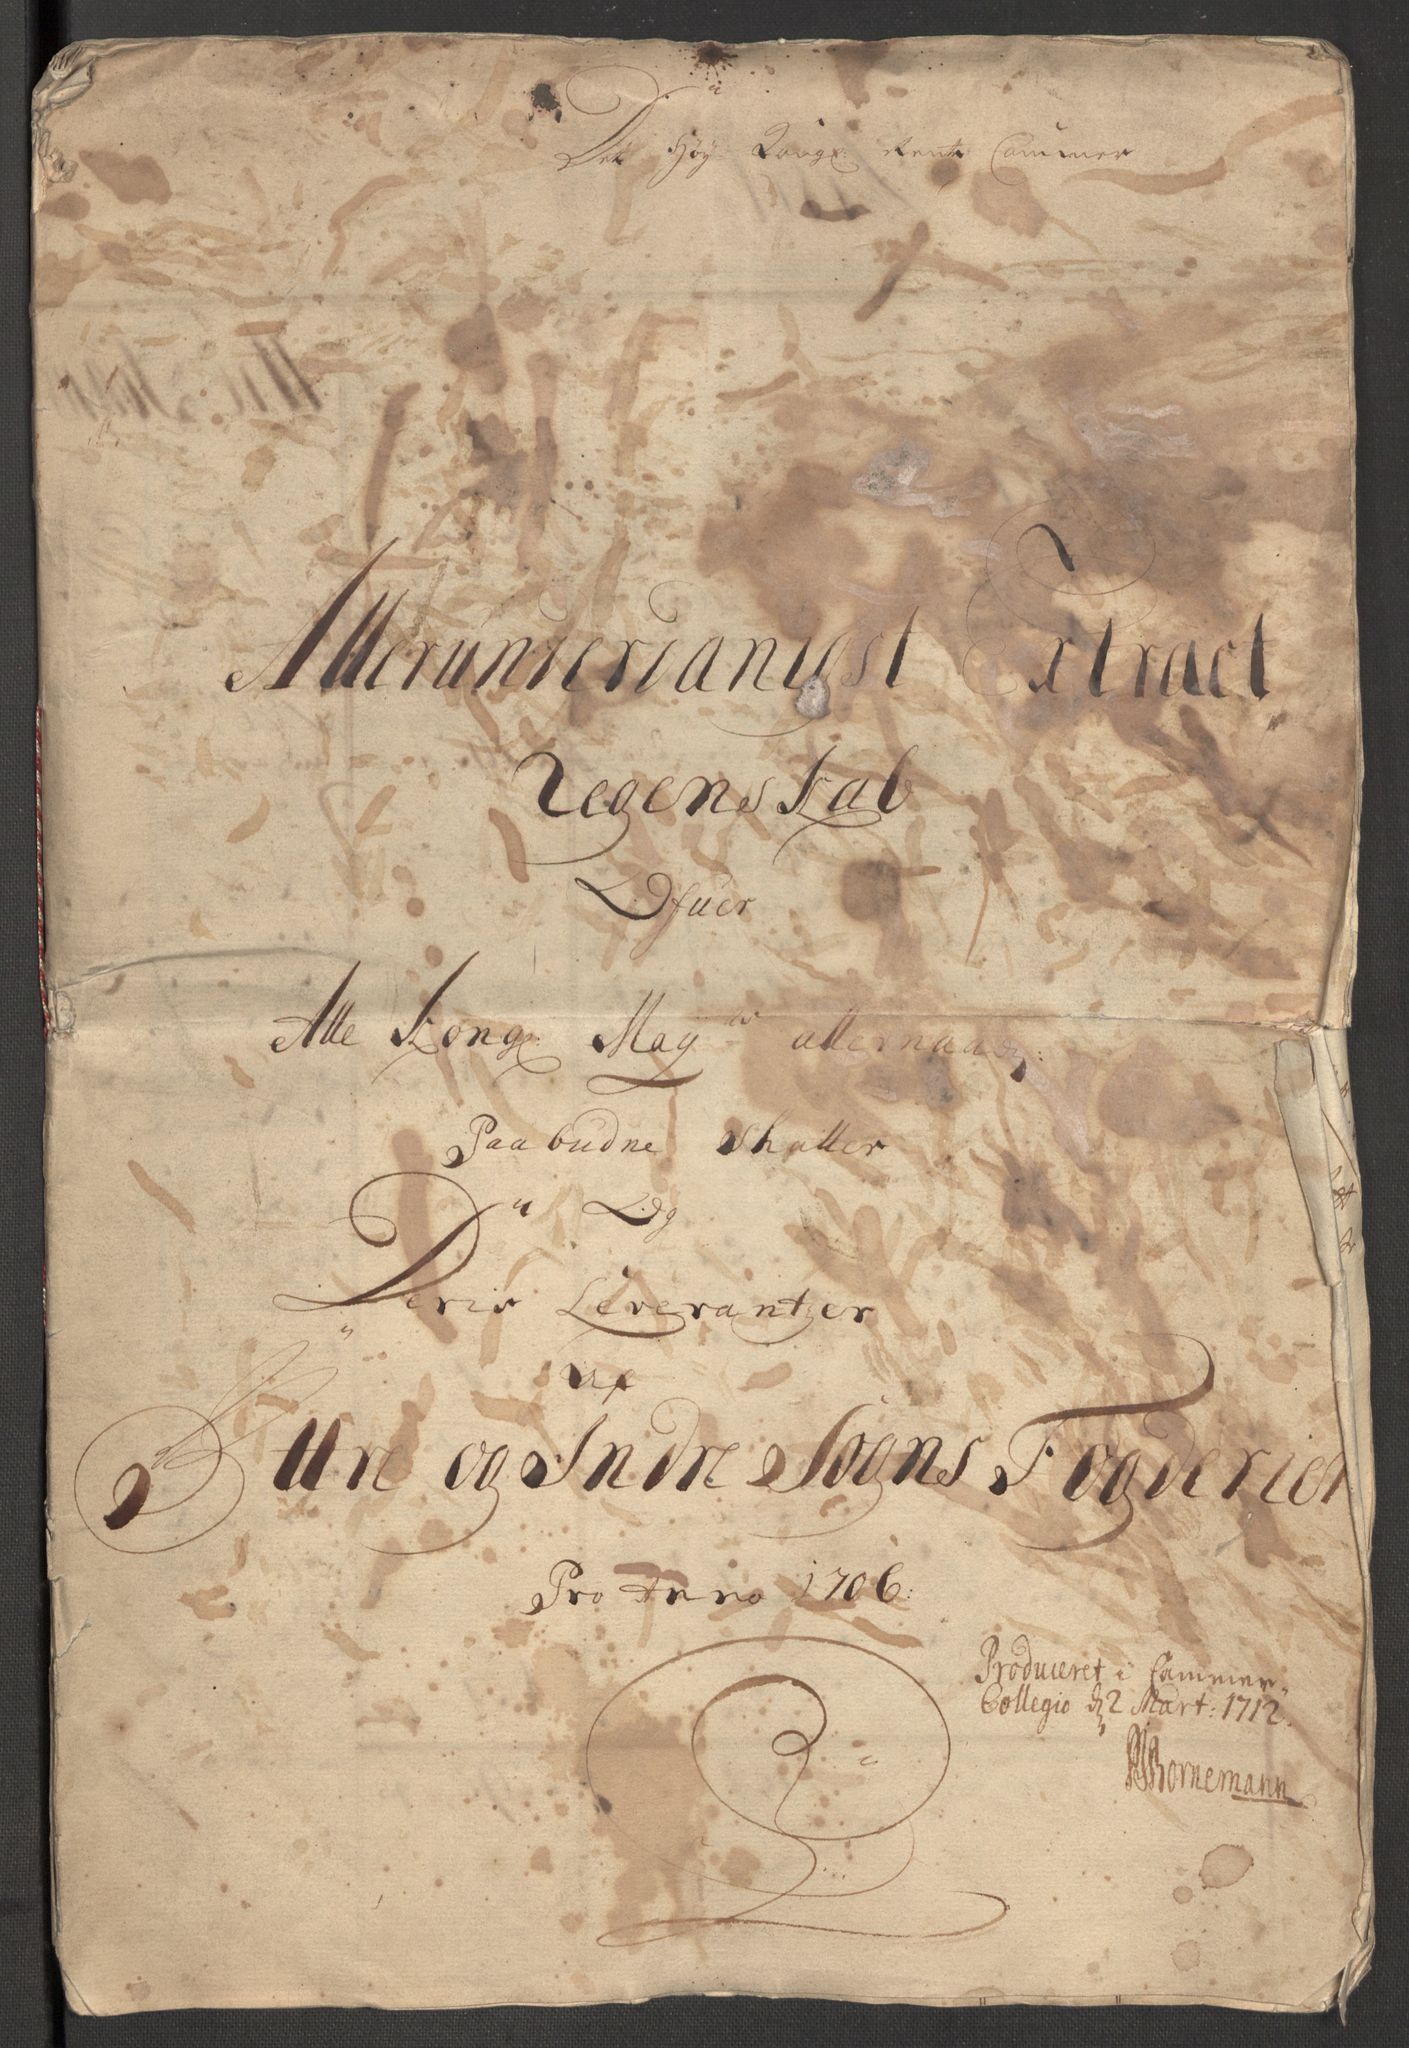 Det Høy Kongl: Rente Cammer
Allerunderdanigst Extract
Regenskab
Ofuer
Alle Kongl: Mayts allernaadg:
Paabudne Skatter
Og
Deris Leverantzer
Af
Yttre og Indre Sogns Fogderier
Pro Anno 1706:
Produceret i Cammer-
Collegio d 2 Mart: 1712.
Bornemann